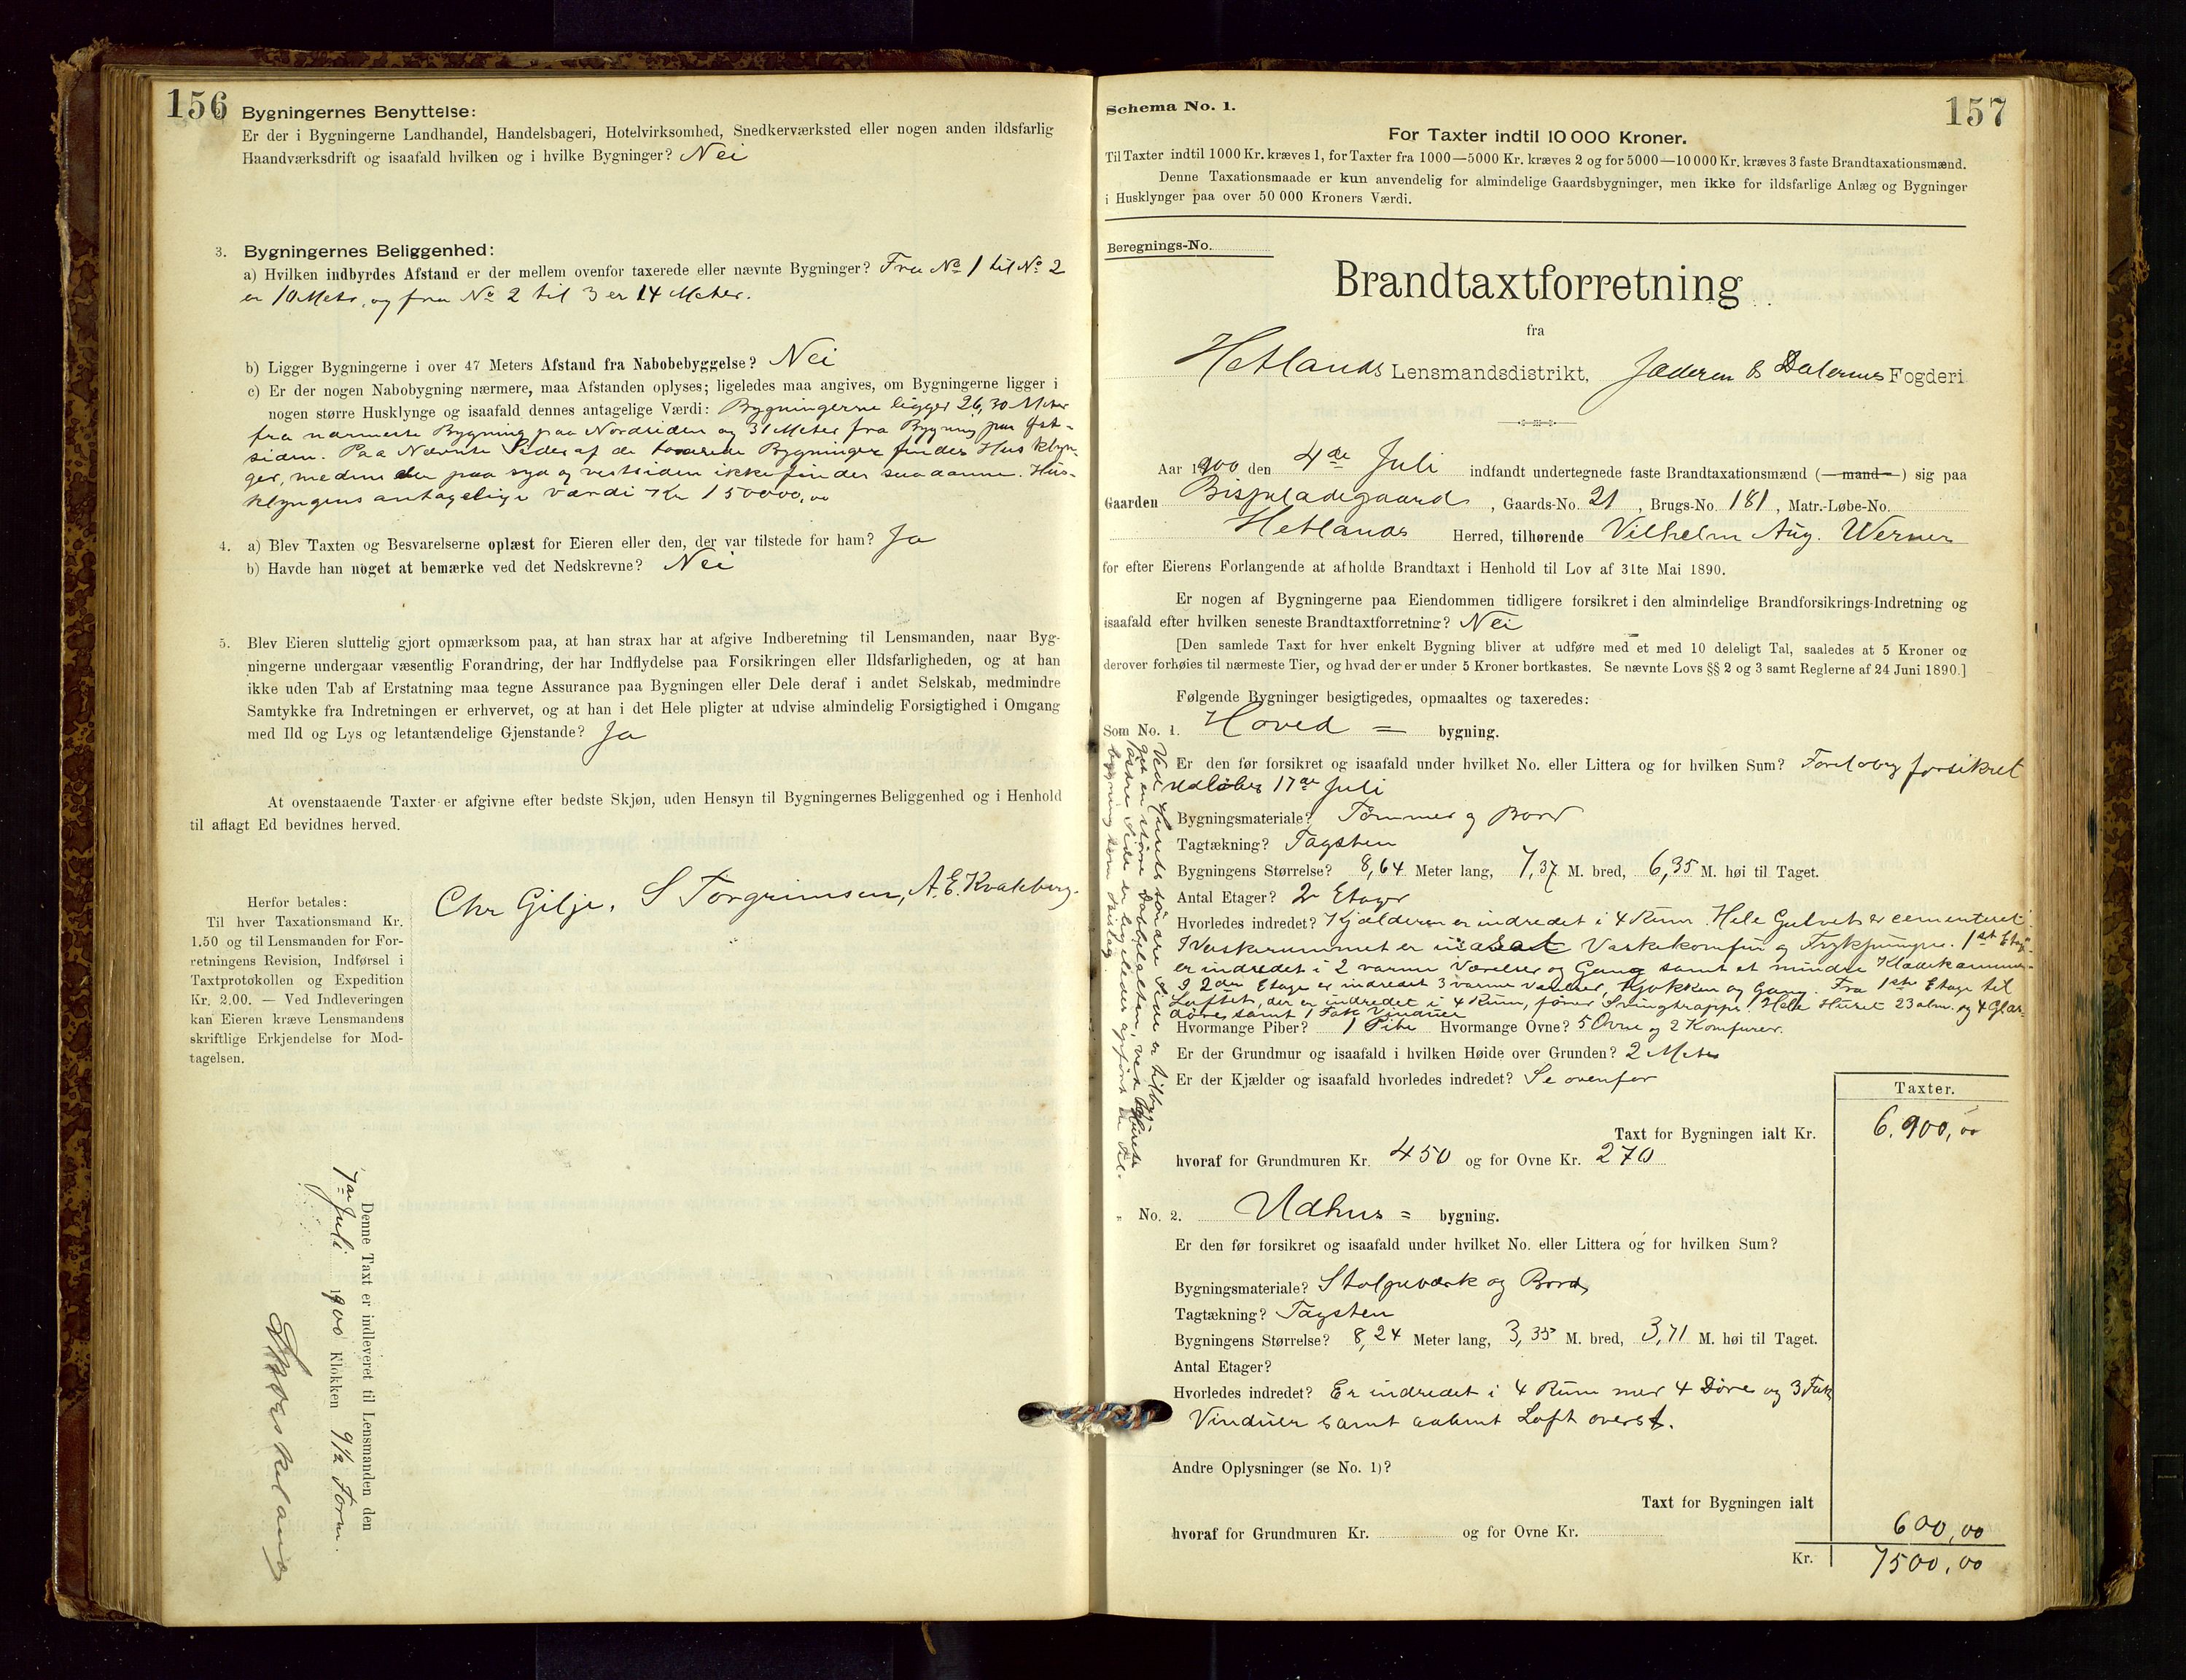 156
Bygningernes Benyttelse:
Er der i Bygningerne Landhandel, Handelsbageri, Hotelvirksomhed, Snedkerværksted eller nogen anden ildsfarlig
Haandværksdrift og isaafald hvilken og i hvilke Bygninger? Nei
3. Bygningernes Beliggenhed:
a) Hvilken indbyrdes Afstand er der mellem ovenfor taxerede eller nævnte Bygninger? Fra No 1 til No 2
er 10 Meter, og fra No 2 til 3 er 14 Meter.
b) Ligger Bygningerne i over 47 Meters Afstand fra Nabobebyggelse? Nei
c) Er der nogen Nabobygning nærmere, maa Afstanden oplyses; ligeledes maa angives, om Bygningerne ligger i
nogen større Husklynge og isaafald dennes antagelige Værdi: Bygningerne ligger 26,30 Meter
fra nærmeste Bygning paa Nordsiden og 31 Meter fra Bygning paa Øst-
siden. Paa Nævnte Sider af de taxerede Bygninger findes Husklyn-
ger, medens der paa syd og vestsiden ikke findes saadanne. Hus-
klyngens antagelige værdi Kr 150000,00
4. a) Blev Taxten og Besvarelserne oplæst for Eieren eller den, der var tilstede for ham? Ja
b) Havde han noget at bemærke ved det Nedskrevne? Nei
5. Blev Eieren sluttelig gjort opmærksom paa, at han strax har at afgive Indberetning til Lensmanden, naar Byg-
ningerne undergaar væsentlig Forandring, der har Indflydelse paa Forsikringen eller Ildsfarligheden, og at han
ikke uden Tab af Erstatning maa tegne Assurance paa Bygningen eller Dele deraf i andet Selskab, medmindre
Samtykke fra Indretningen er erhvervet, og at han i det Hele pligter at udvise almindelig Forsigtighed i Omgang
med Ild og Lys og letantændelige Gjenstande? Ja
At ovenstaaende Taxter er afgivne efter bedste Skjøn, uden Hensyn til Bygningernes Beliggenhed og i Henhold
til aflagt Ed bevidnes herved.
Chr Gilje, S Torgrimsen, A. E. Kvaleberg.
Herfor betales:
Til hver Taxationsmand Kr.
1.50 og til Lensmanden for For-
retningens Revision, Indførsel i
Taxtprotokollen og Expedition
Kr. 2.00. — Ved Indleveringen
kan Eieren kræve Lensmandens
skriftlige Erkjendelse for Mod-
tagelsen.
Denne Taxt er indleveret til Lensmanden den
7de Juli 1900 Klokken 9 1/2 Form.
157
Schema No. 1.
For Taxter indtil 10 000 Kroner.
Til Taxter indtil 1000 Kr. kræves 1, for Taxter fra 1000—5000 Kr. kræves 2 og for 5000—10 000 Kr. kræves 3 faste Brandtaxationsmænd.
Denne Taxationsmaade er kun anvendelig for almindelige Gaardsbygninger, men ikke for ildsfarlige Anlæg og Bygninger
i Husklynger paa over 50 000 Kroners Værdi.
Beregnings-No.
Brandtaxtforretning
fra
Hetlands Lensmandsdistrikt, Jæderen & Dalernes Fogderi
Aar 1900 den 4de Juli indfandt undertegnede faste Brandtaxationsmænd (—mand—) sig paa
Gaarden Bispeladegaard, Gaards-No. 21, Brugs-No. 181, Matr.-Løbe-No.
Hetlands Herred, tilhørende Vilhelm Aug. Werner
for efter Eierens Forlangende at afholde Brandtaxt i Henhold til Lov af 31te Mai 1890.
Er nogen af Bygningerne paa Eiendommen tidligere forsikret i den almindelige Brandforsikrings-Indretning og
isaafald efter hvilken seneste Brandtaxtforretning? Nei
[Den samlede Taxt for hver enkelt Bygning bliver at udføre med et med 10 deleligt Tal, saaledes at 5 Kroner og
derover forhøies til nærmeste Tier, og hvad der er under 5 Kroner bortkastes. Se nævnte Lovs §§ 2 og 3 samt Reglerne af 24 Juni 1890.]
Følgende Bygninger besigtigedes, opmaaltes og taxeredes:
Som No. 1. Hoved = bygning.
Er den før forsikret og isaafald under hvilket No. eller Littera og for hvilken Sum? Foreløbig forsikret
udløber 17de Juli
Bygningsmateriale? Tømmer og Bord
Tagtækning? Tagsten
Bygningens Størrelse? 8,64 Meter lang, 7,37 M. bred, 6,35 M. høi til Taget.
Antal Etager? 2 Etager
Hvorledes indredet? Kjælderen er indredet i 4 Rum. Hele Gulvet er cementeret.
I Vaskerummet er indsat Vaskekomfur og Trykpumpe. 1ste Etage
er indredet i 2 varme Værelser og Gang samt et mindre Klædekammer.
I 2den Etage er indredet 3 varme værelser, Kjøkken og Gang. Fra 1ste Etage til
Loftet, der er indredet i 4 Rum, fører Svingtrappe. Hele Huset 23 alm. og 4 Glas-
døre samt 1 Fak Vinduer
Hvormange Piber? 1 Pibe Hvormange Ovne? 5 Ovne og 2 Komfurer.
Er der Grundmur og isaafald i hvilken Høide over Grunden? 2 Meter
Er der Kjælder og isaafald hvorledes indredet? Se ovenfor
Taxter.
Taxt for Bygningen ialt Kr. 6.900,00
hvoraf for Grundmuren Kr. 450 og for Ovne Kr. 270
Ved Husets søndre Side er tilbyg-
get en større Dobbeltaltan, ved Husets
„ No. 2. Udhus = bygning.
Er den før forsikret og isaafald under hvilket No. eller Littera og for hvilken Sum?
Bygningsmateriale? Stolpeværk og Bord
Tagtækning? Tagsten
Bygningens Størrelse? 8,24 Meter lang, 3,35 M. bred, 3,71 M. høi til Taget.
Antal Etager?
Hvorledes indredet? Er indredet i 4 Rum med 4 Døre og 3 Fak
Vinduer samt aabent Loft overst.
Andre Oplysninger (se No. 1)?
Taxt for Bygningen ialt
hvoraf for Grundmuren Kr. og for Ovne Kr.
600,00
Kr. 7500,00